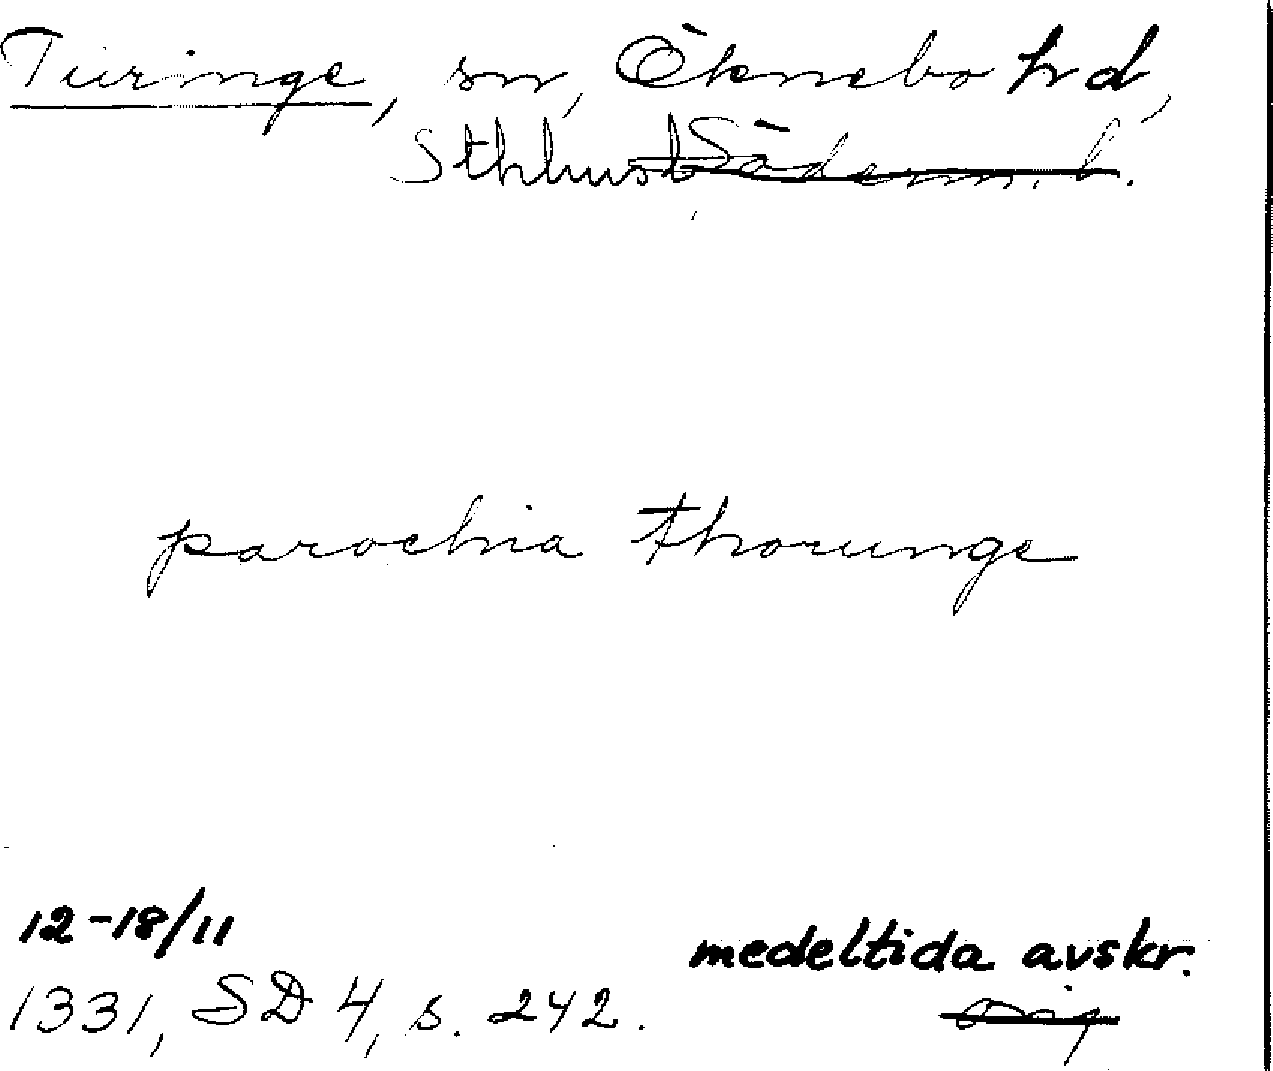 Turinge, sn, Öknebo hd,
Sthlms l Söderm. l.
parochia thorunge
12-18/11
medeltida avskr.
1331, SD 4, s. 242.
orig